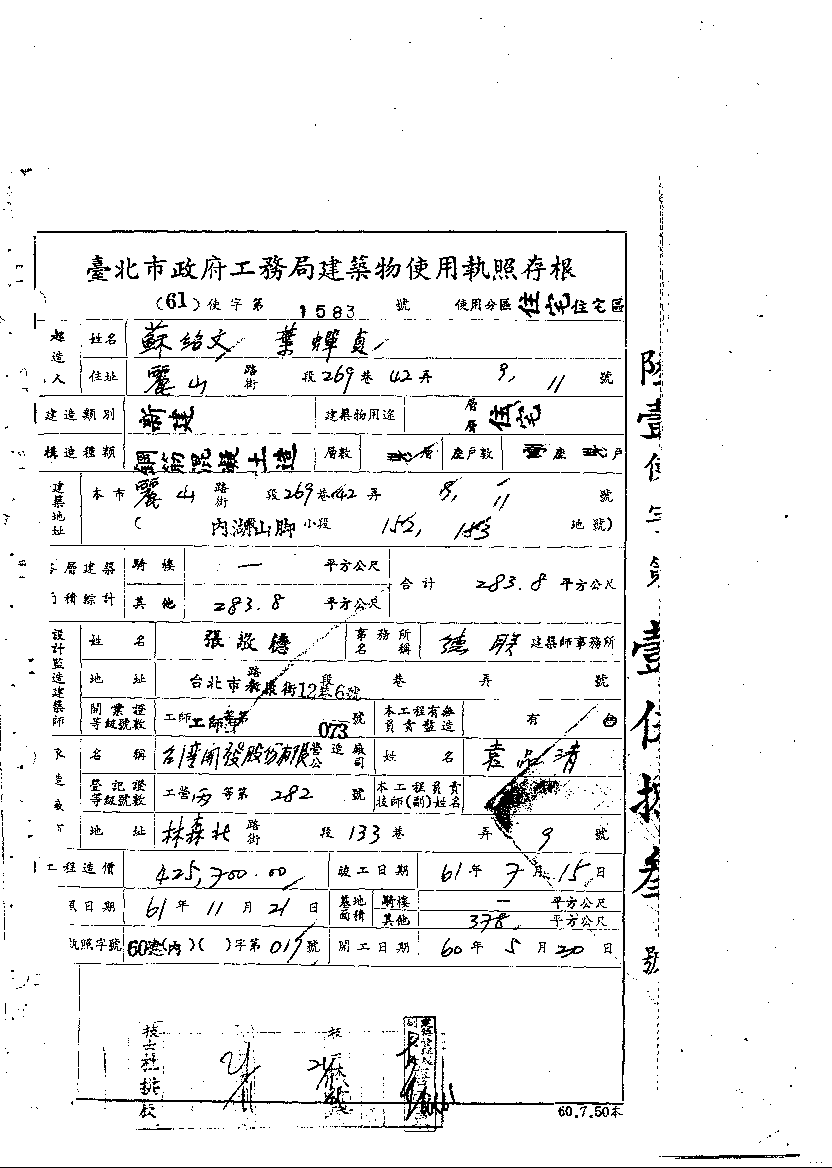 臺北市政府工務局建築物使用執照存根
(61)使字第 1583 號 使用分區 住宅 住宅區
起造人 姓名 蘇紹文 葉蟬貞
住址 麗山 路街 段 269 巷 42 弄 9, 11 號
建造類別 新建 建築物用途 層層 住宅
構造種類 鋼筋混凝土造 層數 層 座戶數 座 戶
建築地址 本市 麗山 路街 段 269 巷 42 弄 9, 11 號
( 內湖山脚 小段 152, 153 地號)
層建築面積綜計 騎樓 — 平方公尺 合計 283.8 平方公尺
其他 283.8 平方公尺
設計監造建築師 姓名 張敬德 事務所名稱 德朕 建築師事務所
地址 台北市 路街 12巷6號 段 巷 弄 號
開業證等級號數 工師 工師 等第 073 號 本工程有無負責監造 有
名稱 台灣開發股份有限 營造廠公司 姓名 袁品清
登記證等級號數 工營 丙 等第 282 號 本工程負責技師(副)姓名
地址 林森北 路街 段 133 巷 弄 9 號
工程造價 425,700.00 竣工日期 61 年 7 月 15 日
日期 61 年 11 月 21 日 基地面積 騎樓 — 平方公尺
其他 378 平方公尺
執照字號 60建(內)( )字第 019 號 開工日期 60 年 5 月 20 日
60.7.50本
陸壹使字第壹伍捌叁號